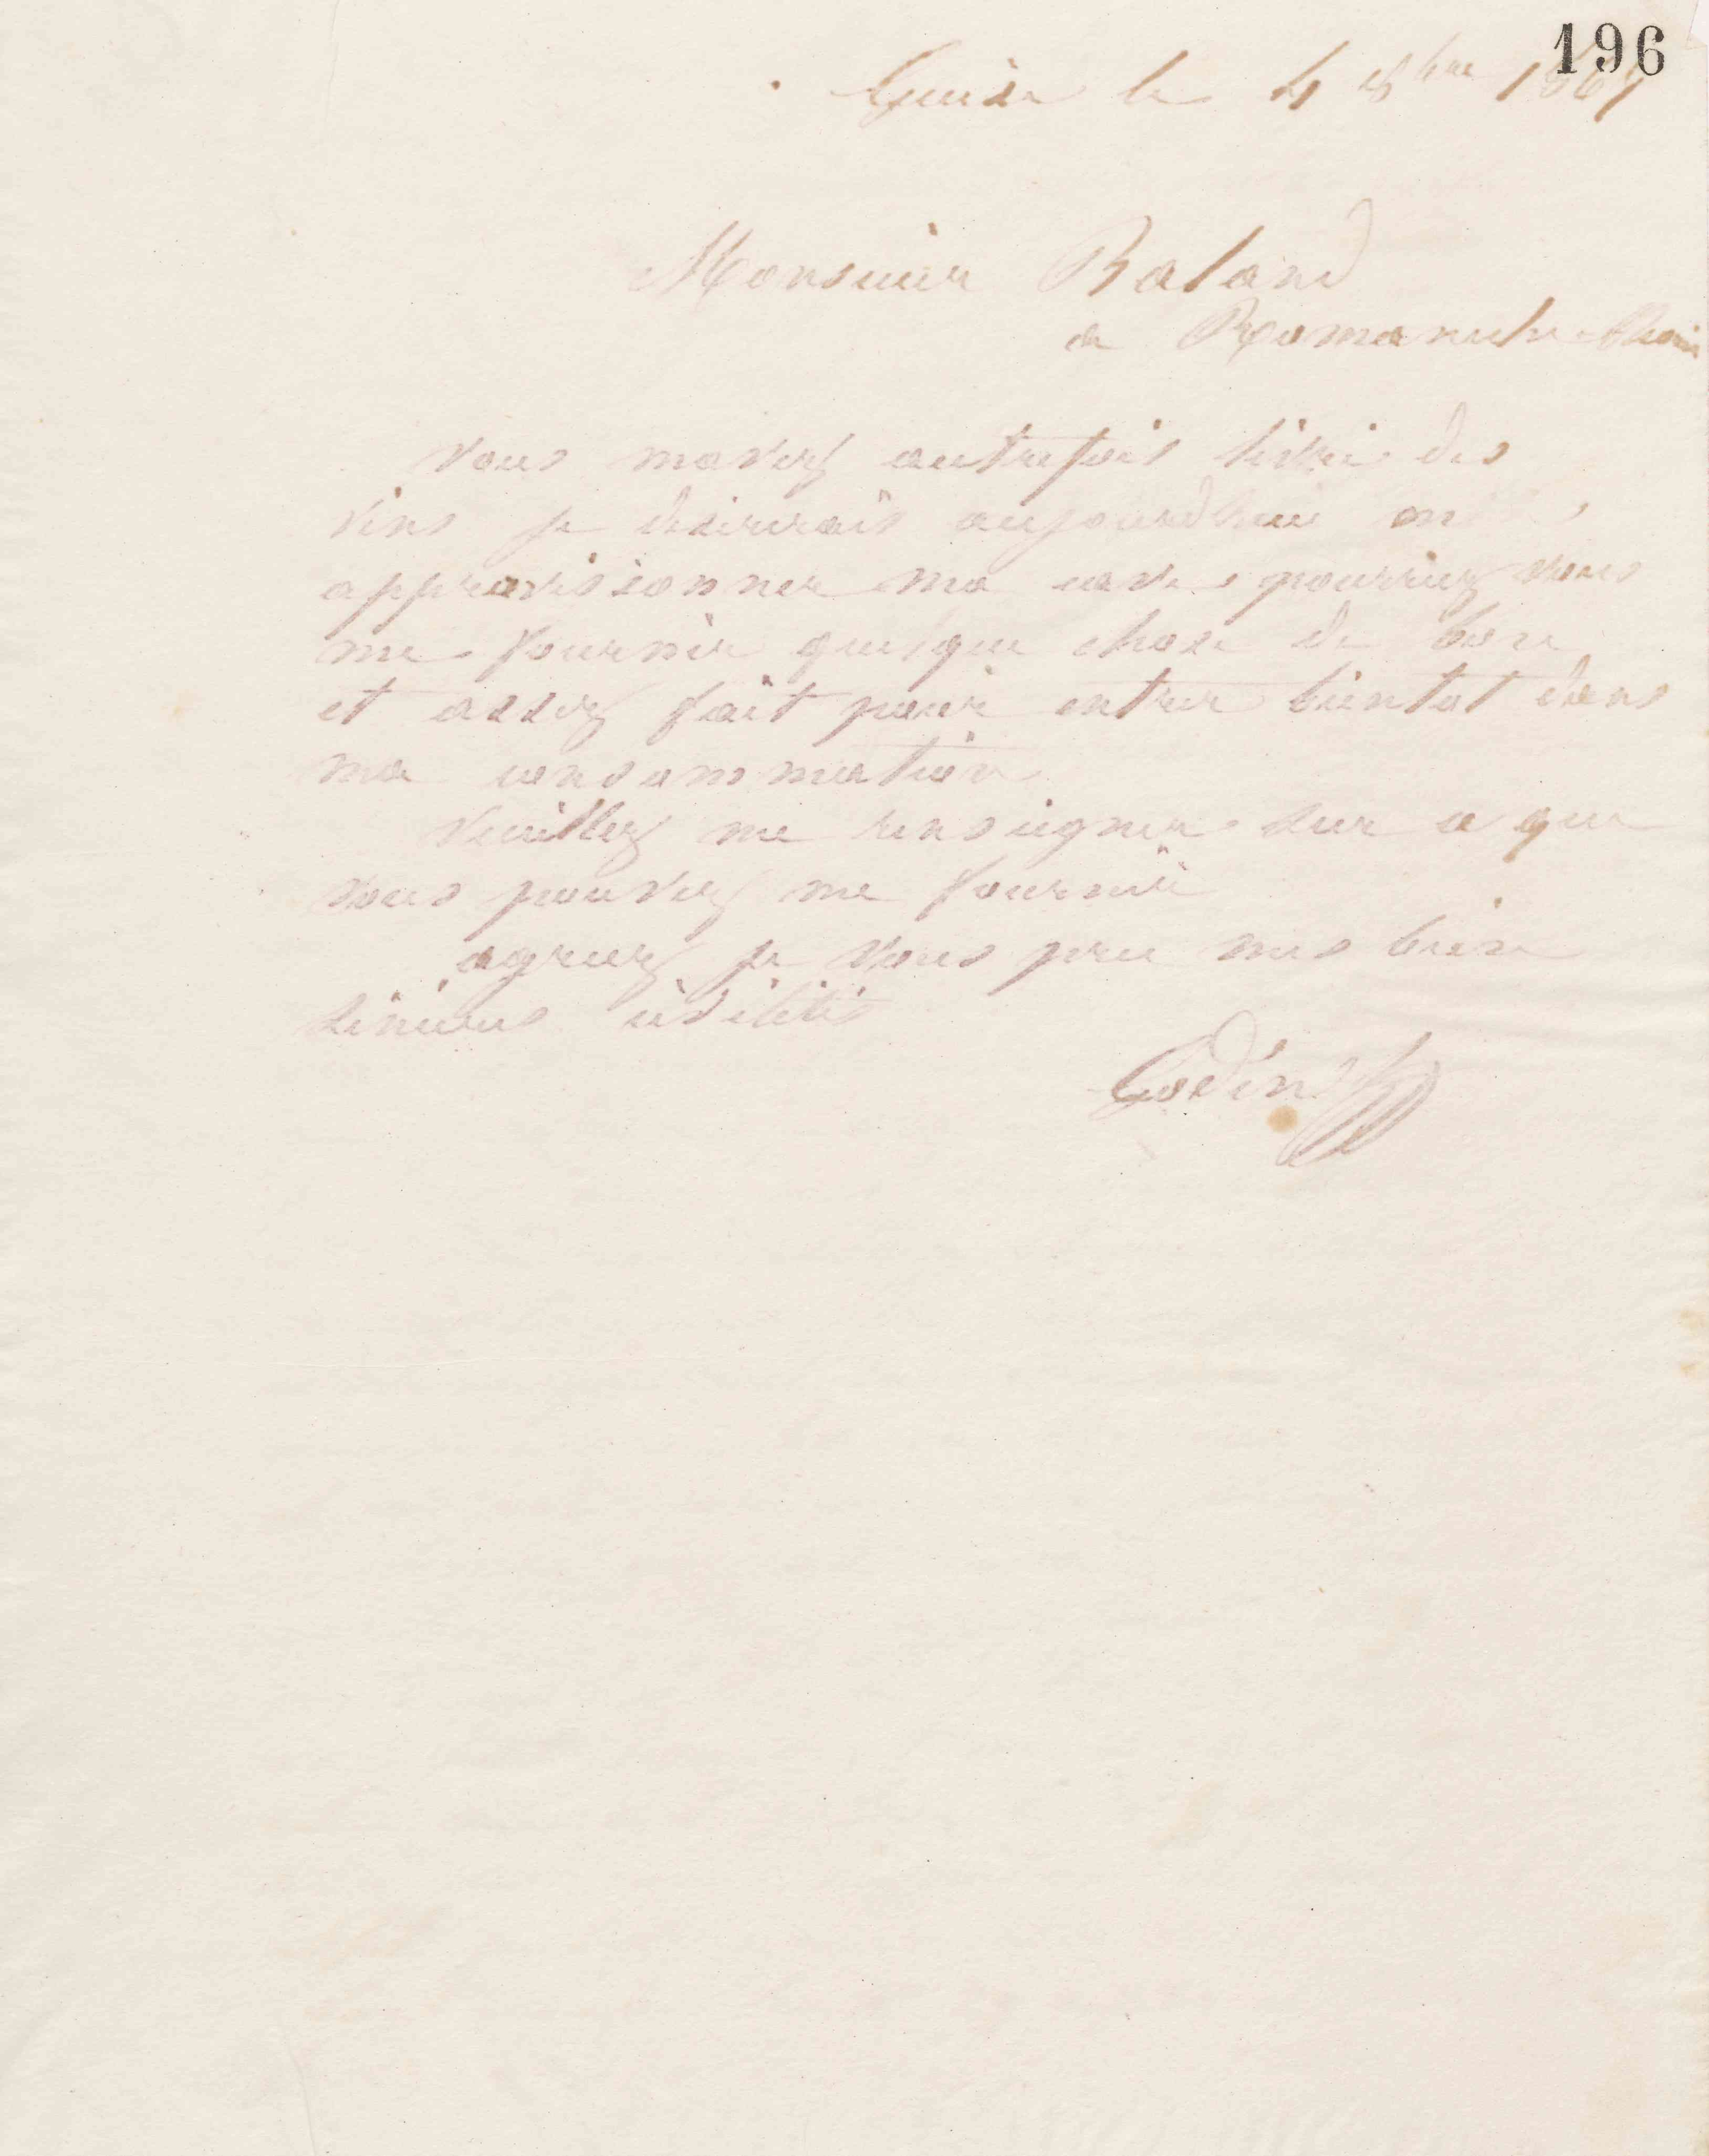 196
Guise le 4 8bre 1867
Monsieur Baland
de Romaneche
vous mavez autrefois livré des
vins je desirerais aujourdhui
approvisionner ma cave pourriez vous
me fournir quelque chose de bon
et assez fait pour entrer bientot dans
ma consommation
Veuillez me renseigner sur ce que
vous pouvez me fournir
agreez je vous prie mes bien
sinceres civilités
Godin